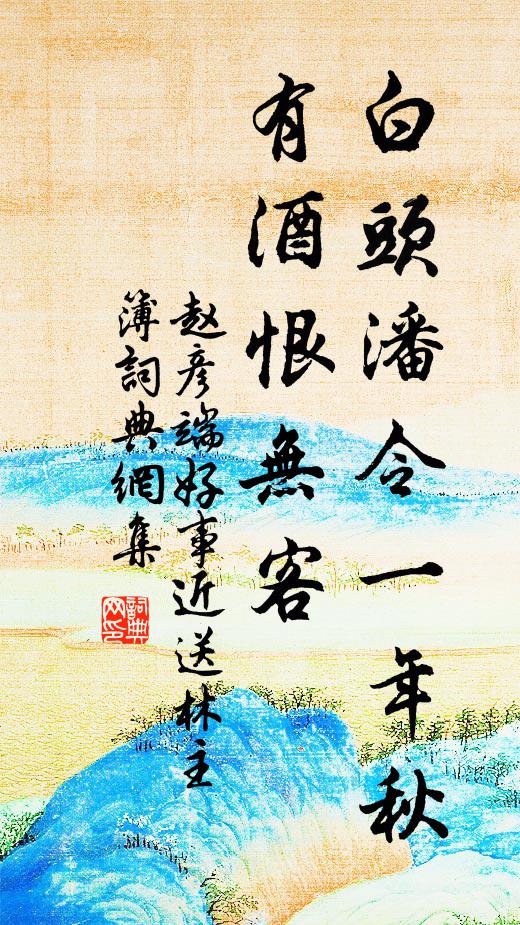 白頭潘令一年秋
有酒恨無客
赵彦端好事近送林主
簿詞典網集
詞典網印